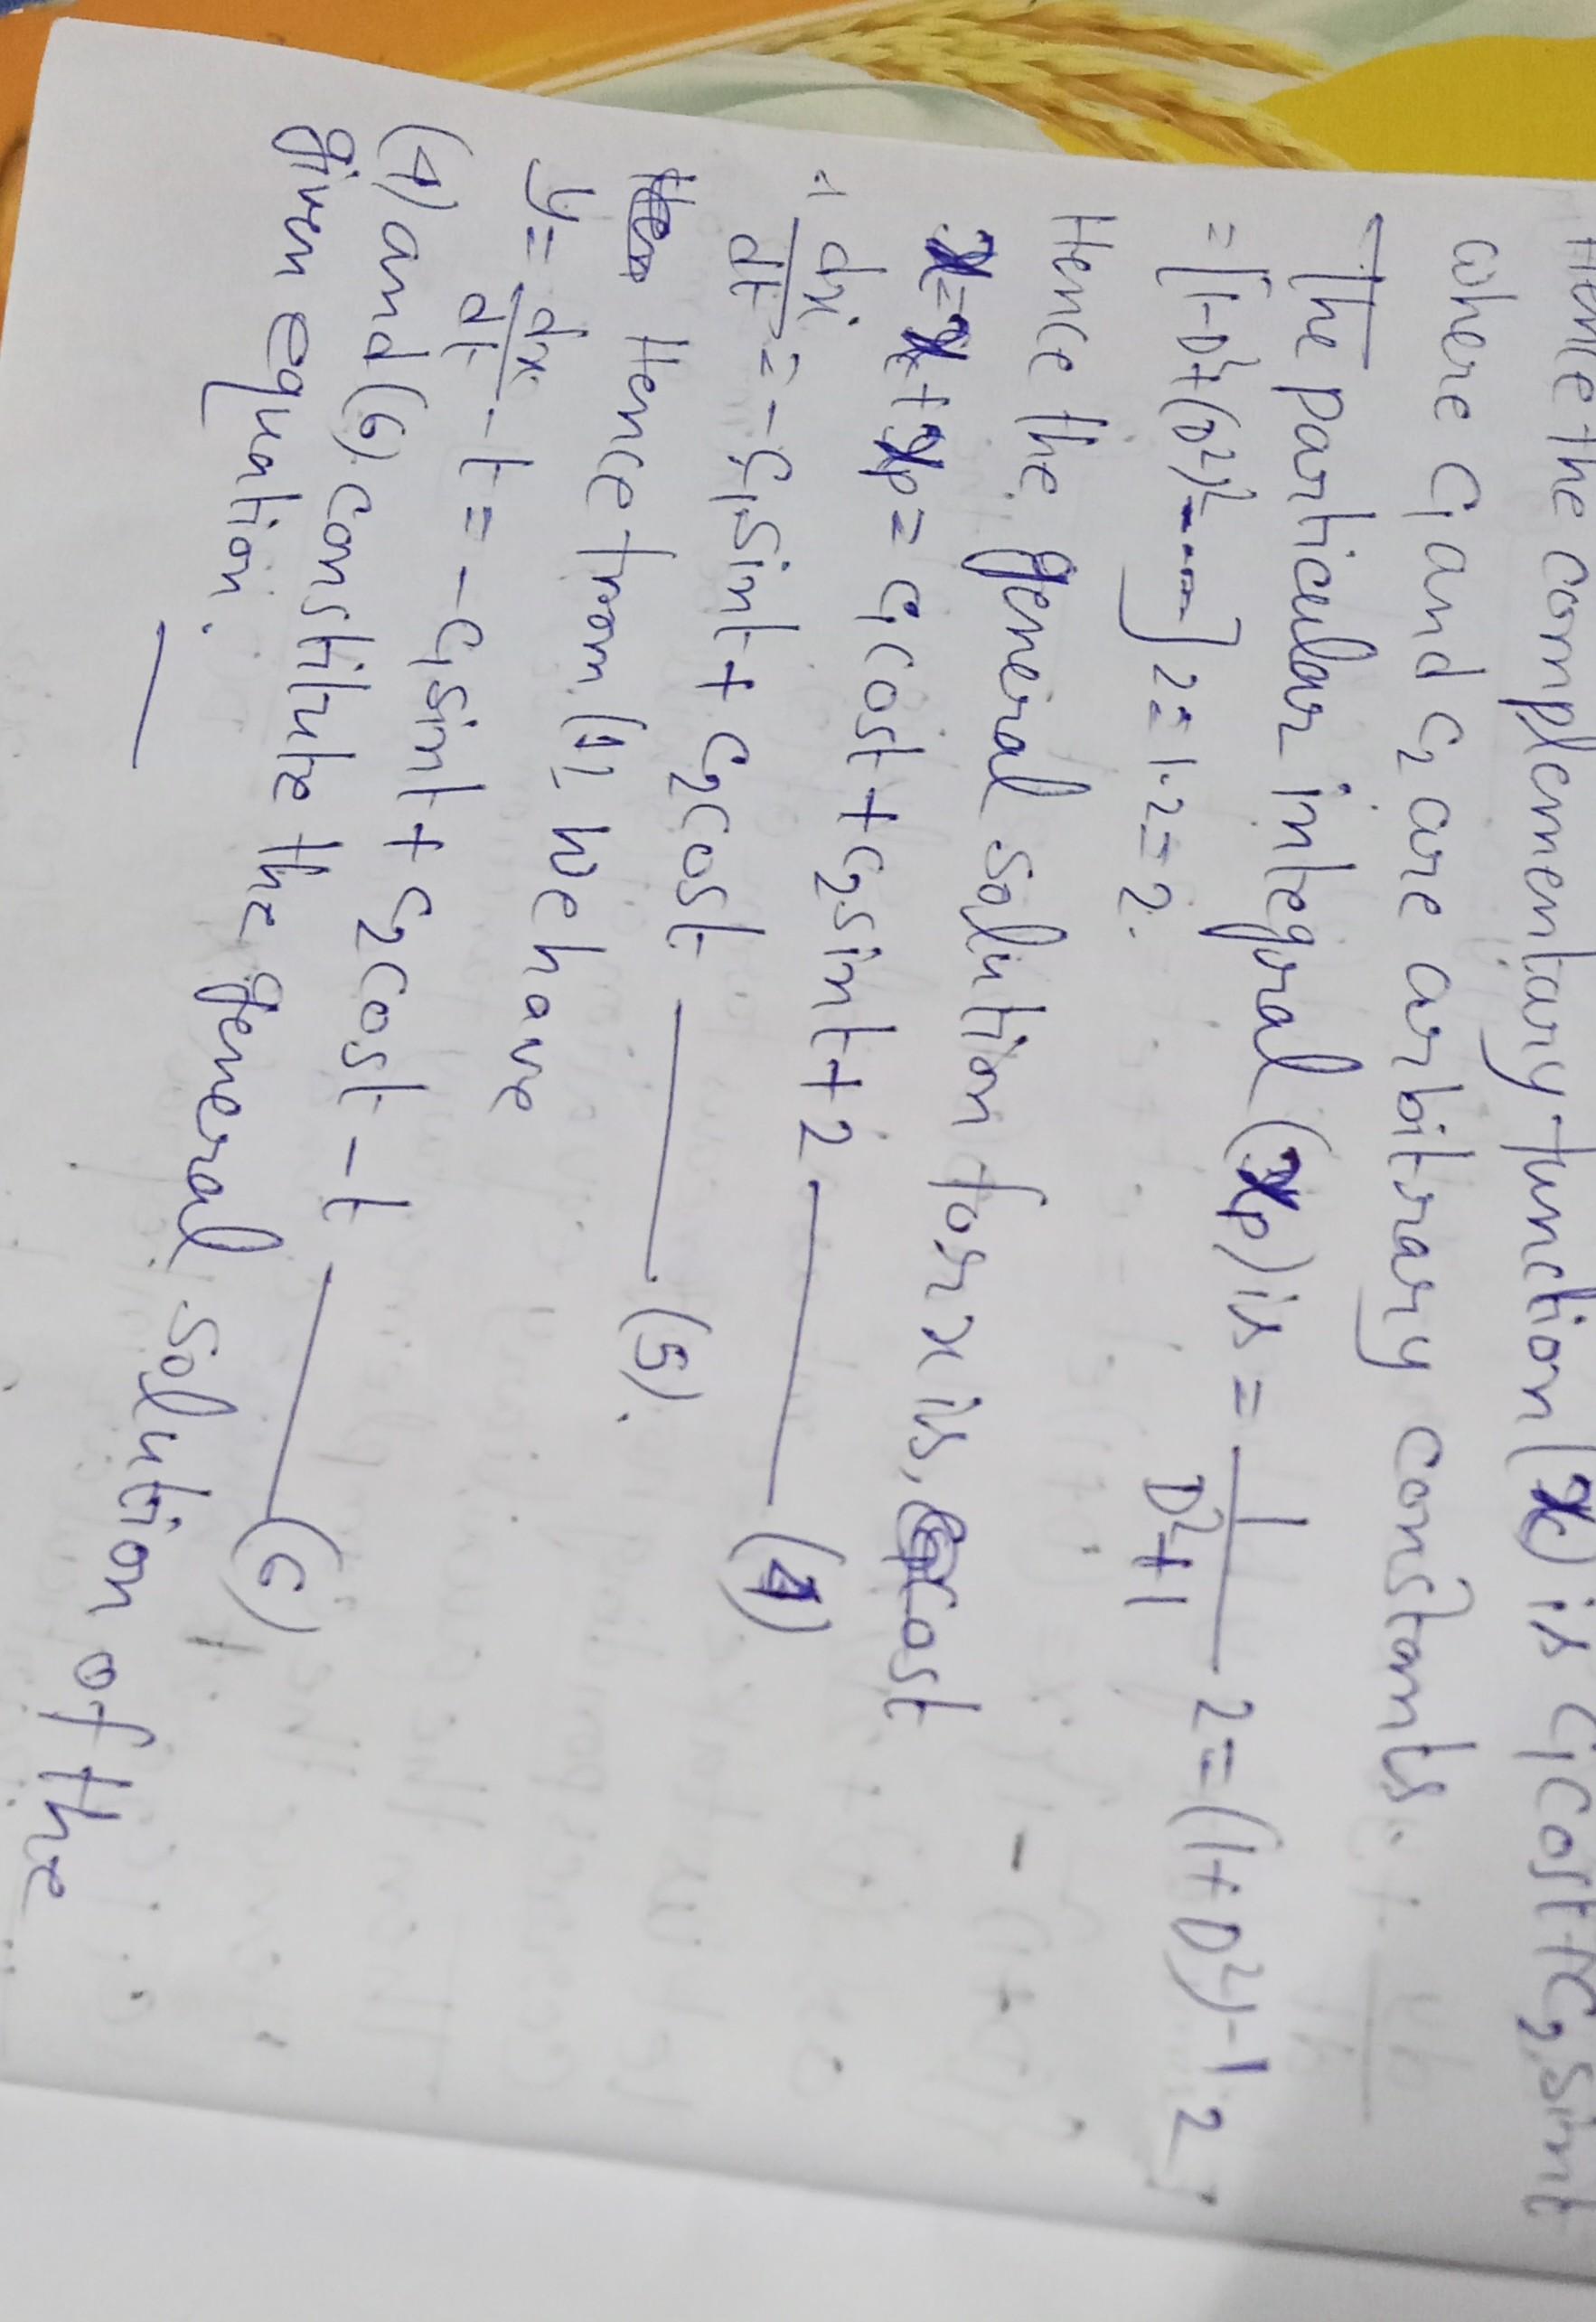 Hence the complementary function (x) is C₁cost+C₂sint
where C₁ and C₂ are arbitrary constants.
The particular integral (xp) is = 1/(D²+1) 2 = (1+D²)-1 2
= [1-D²+(D²)²----] 2 = 1.2 = 2.
Hence the general solution for x is, cost
x = x + xp = C₁cost + C₂sint + 2 —— (4)
∴ dx/dt = -C₁sint + C₂cost —— (5).
Hence from (1), we have
y = dx/dt - t = -C₁sint + C₂cost - t —— (6)
(4) and (6) constitute the general solution of the
given equation.